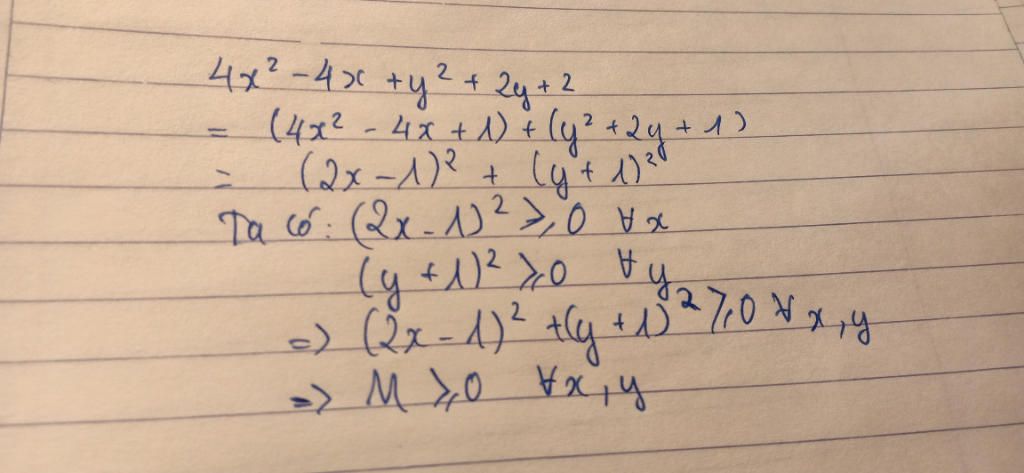 4x² - 4x + y² + 2y + 2
= (4x² - 4x + 1) + (y² + 2y + 1)
= (2x - 1)² + (y + 1)²
Ta có: (2x - 1)² ⩾ 0 ∀x
(y + 1)² ⩾ 0 ∀y
=> (2x - 1)² + (y + 1)² ⩾ 0 ∀x, y
=> M ⩾ 0 ∀x, y